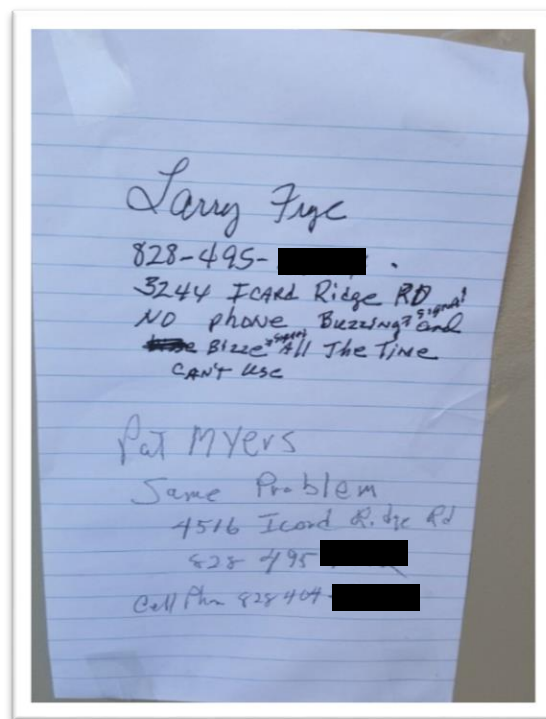 Larry Frye
828-495-
3244 Icard Ridge RD
NO phone Buzzing & signal and
Bizze signal All The Time
CAN'T Use
Pat Myers
Same Problem
4516 Icard Ridge Rd
828 495
Cell Phn 828 404-